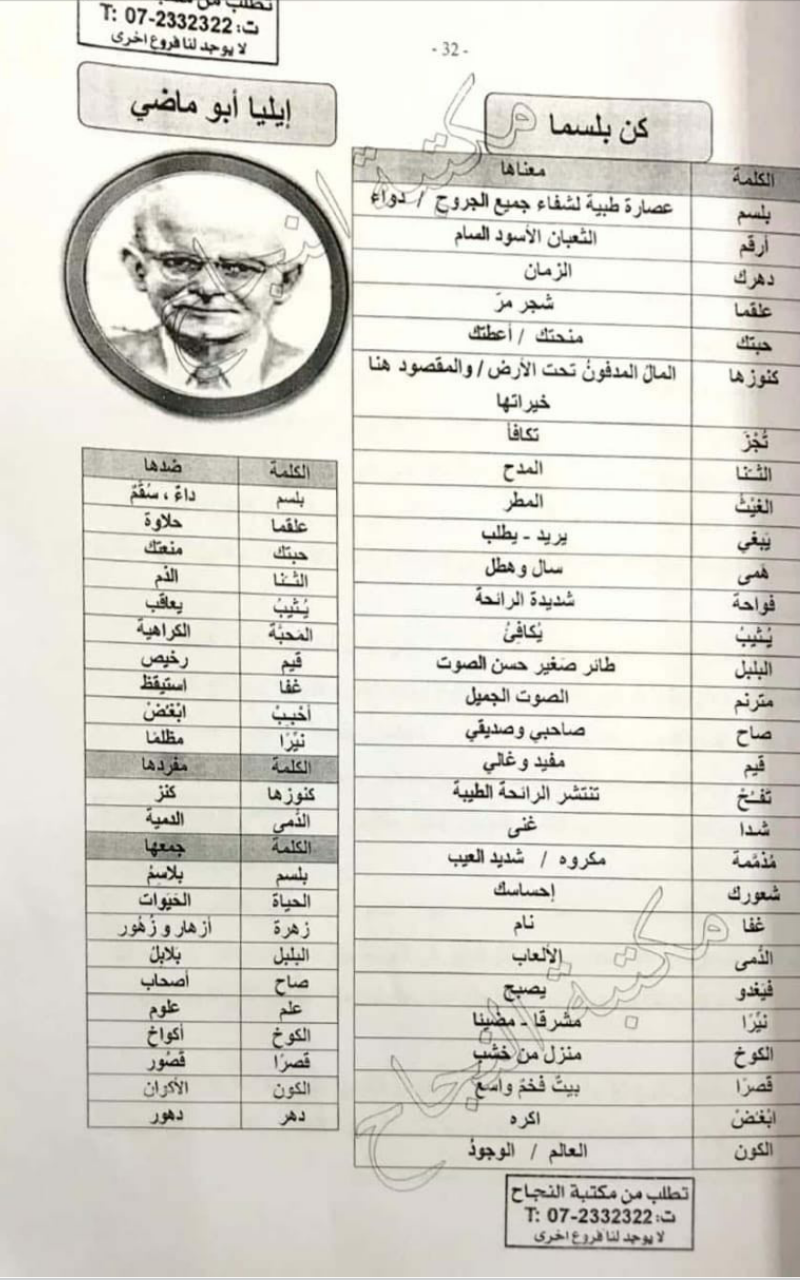 تطلب من مكتبة
ت: 07-2332322 :T
لا يوجد لنا فروع اخرى
- 32 -
كن بلسما
إيليا أبو ماضي
الكلمة معناها
بلسم عصارة طبية لشفاء جميع الجروح / دواء
أرقم الثعبان الأسود السام
دهرك الزمان
علقما شجر مرّ
حبتك منحتك / أعطتك
كنوزها المالُ المدفونُ تحت الأرض / والمقصود هنا
خيراتها
تُجْزَ تكافأ
الثَّنا المدح
الغَيْثُ المطر
يَبغي يريد - يطلب
هَمى سال وهطل
فواحة شديدة الرائحة
يُثيبُ يُكافِئُ
البلبل طائر صغير حسن الصوت
مترنم الصوت الجميل
صاح صاحبي وصديقي
قيم مفيد وغالي
تَفُحْ تنتشر الرائحة الطيبة
شدا غنى
مُذَمَّمة مكروه / شديد العيب
شعورك إحساسك
غفا نام
الدُّمى الألعاب
فيَغدو يصبح
نيِّرًا مشرقا - مضيئا
الكوخ منزل من خشب
قصرًا بيتٌ فخمٌ واسعٌ
ابْغَضْ اكره
الكون العالم / الوجودُ
الكلمة ضدها
بلسم داءٌ ، سُقْمٌ
علقما حلاوة
حبتك منعتك
الثَّنا الذم
يُثيبُ يعاقب
المَحبَّة الكراهية
قيم رخيص
غفا استيقظ
أحْبِبْ ابْغَضْ
نيِّرًا مظلمًا
الكلمة مفردها
كنوزها كنز
الدُّمى الدمية
الكلمة جمعها
بلسم بلاسمُ
الحياة الحَيَوات
زهرة أزهار و زُهُور
البلبل بَلابلُ
صاح أصحاب
علم علوم
الكوخ أكواخ
قصرًا قصُور
الكون الأكوان
دهر دهور
مكتبة النجاح
مكتبة النجاح
تطلب من مكتبة النجاح
ت: 07-2332322 :T
لا يوجد لنا فروع اخرى